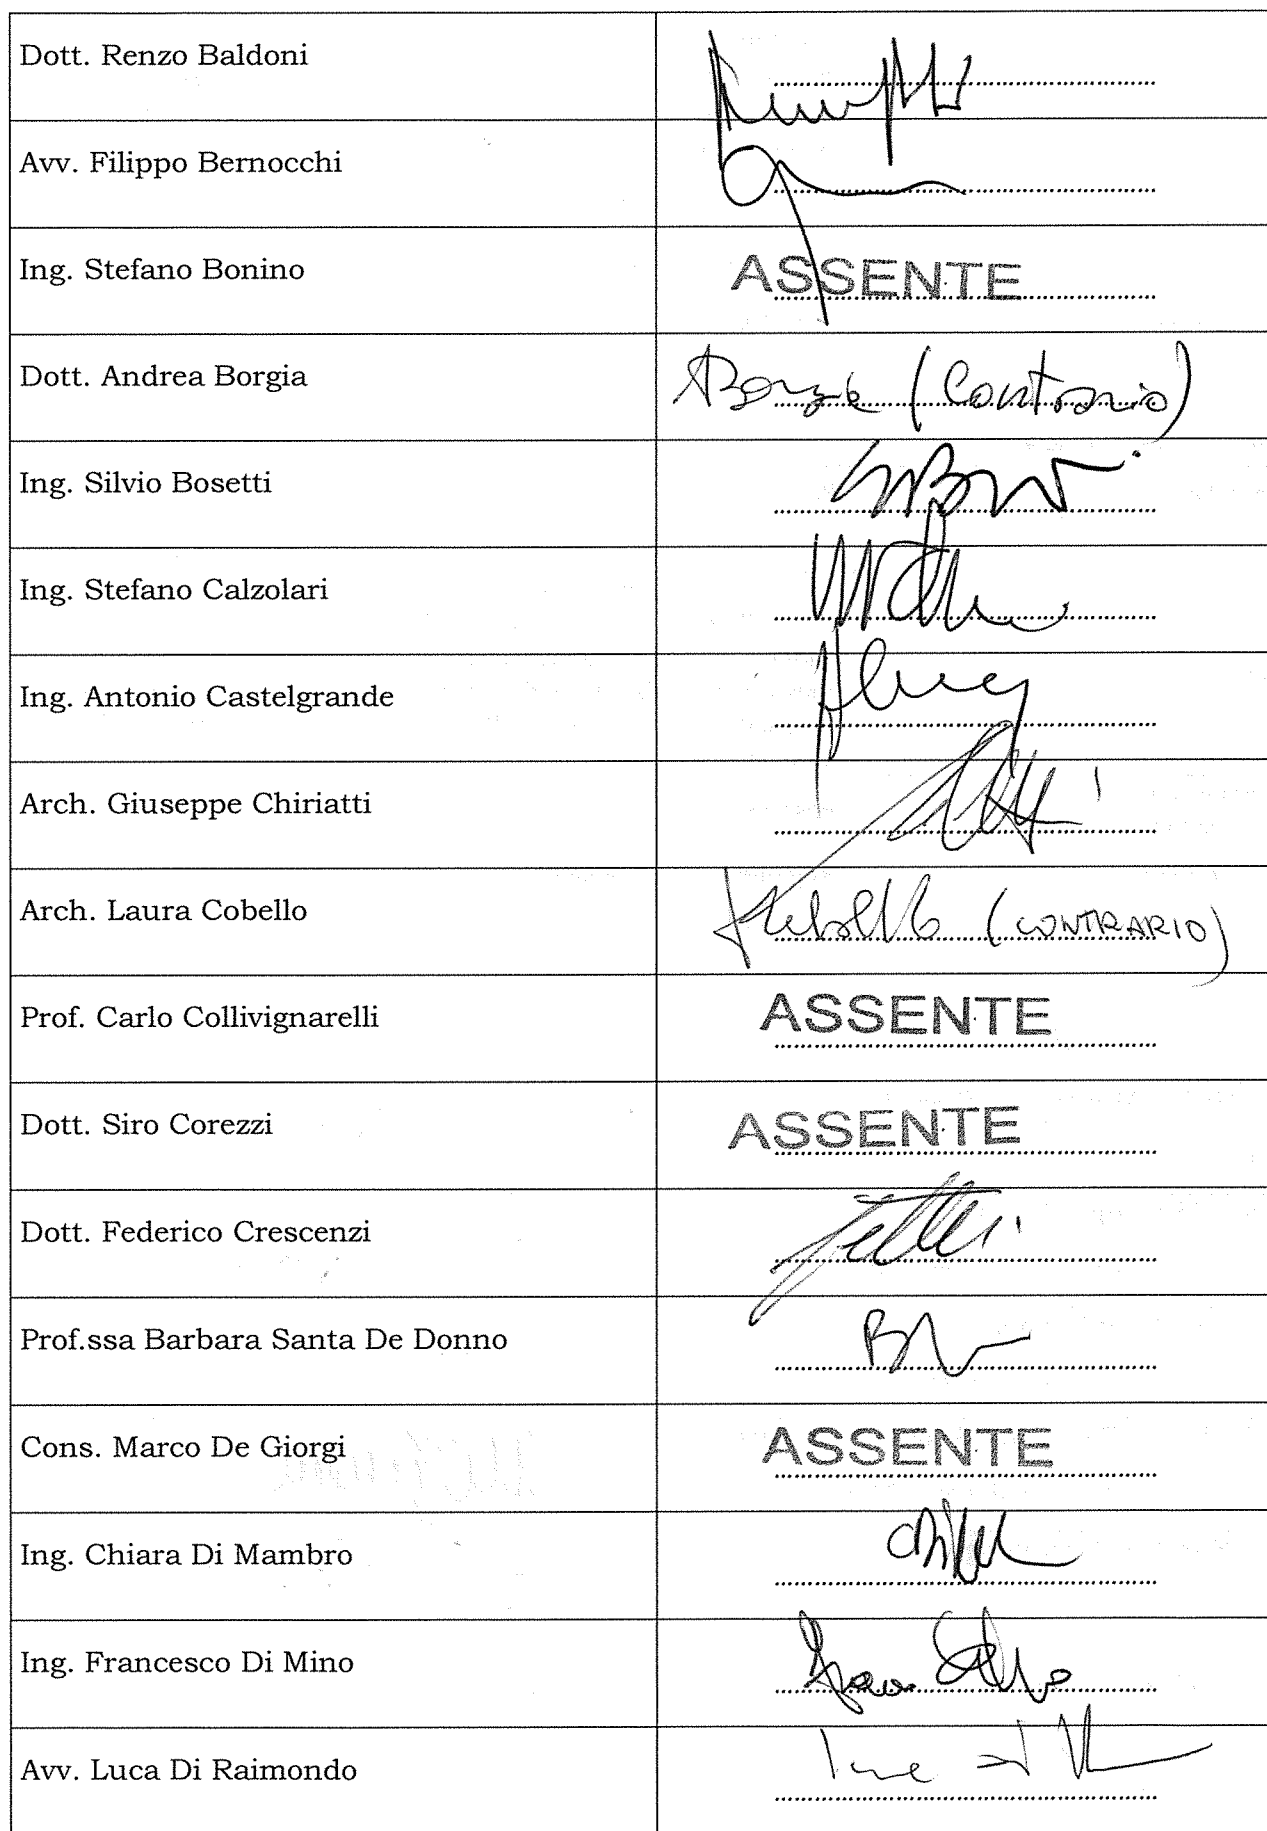 Dott. Renzo Baldoni
Avv. Filippo Bernocchi
Ing. Stefano Bonino
ASSENTE
Dott. Andrea Borgia
(Contrario)
Ing. Silvio Bosetti
Ing. Stefano Calzolari
Ing. Antonio Castelgrande
Arch. Giuseppe Chiriatti
Arch. Laura Cobello
(CONTRARIO)
Prof. Carlo Collivignarelli
ASSENTE
Dott. Siro Corezzi
ASSENTE
Dott. Federico Crescenzi
Prof.ssa Barbara Santa De Donno
Cons. Marco De Giorgi
ASSENTE
Ing. Chiara Di Mambro
Ing. Francesco Di Mino
Avv. Luca Di Raimondo